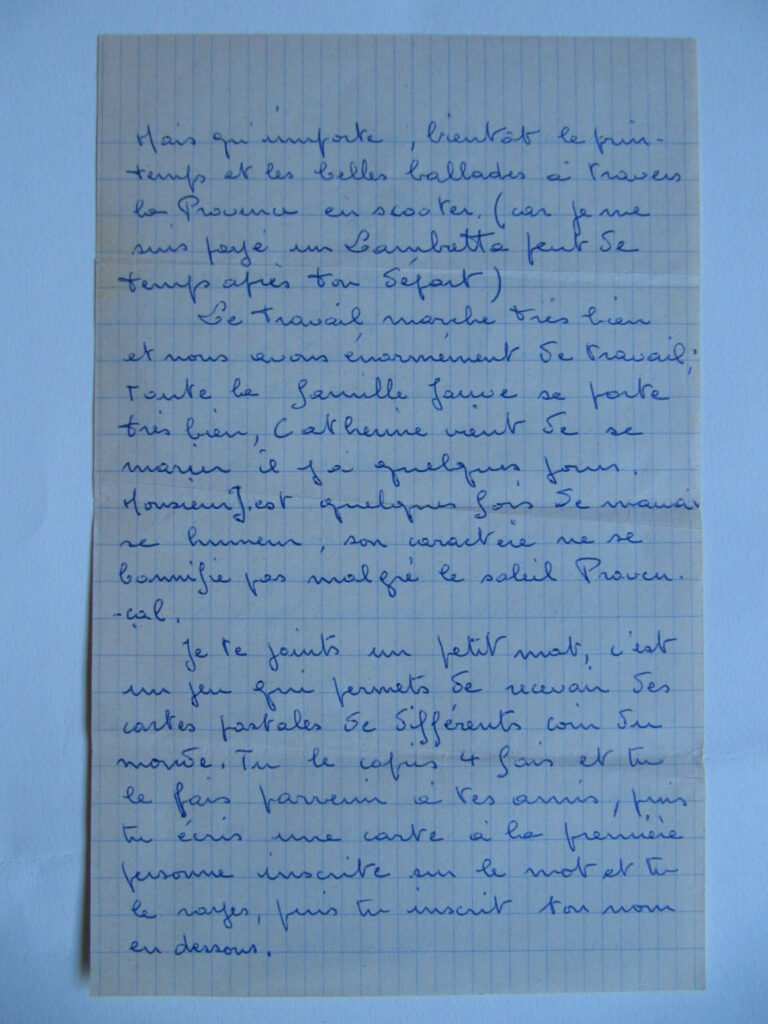 Mais qu'importe, bientôt le prin-
temps et les belles ballades à travers
la Provence en scooter. (car je me
suis payé un Lambretta peut de
temps après ton départ)
Le travail marche très bien
et nous avons énormément de travail;
Toute la famille Jauve se porte
très bien, Catherine vient de se
marier il y a quelques jours.
Monsieur J. est quelques fois de mauvai
se humeur, son caractère ne se
bonnifie pas malgré le soleil Proven.
-çal.
Je te joints un petit mot, c'est
un jeu qui permets de recevoir des
cartes postales de différents coin du
monde. Tu le copies 4 fois et tu
le fais parvenir à tes amis, puis
tu écris une carte à la première
personne inscrite sur le mot et tu
le rayes, puis tu inscrit ton nom
en dessous.